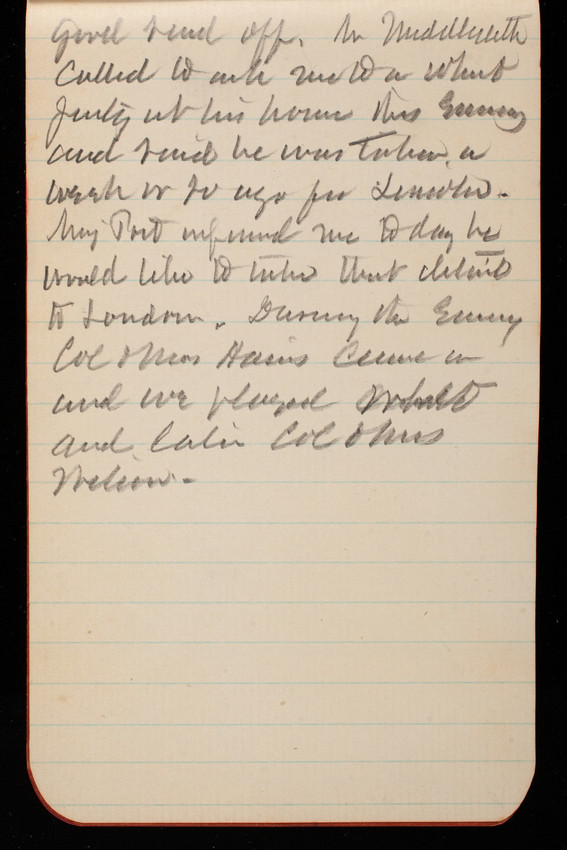 good send off. Mr Middleworth
Called to ask me to a whist
party at his home this Evening
and said he was taken a
week or so ago for Lincoln.
Maj Post informed me to day he
would like to take that detail
to London. During the Evening
Col & Mrs Hains Came in
and we played Whist
and later Col & Mrs
Wilson.